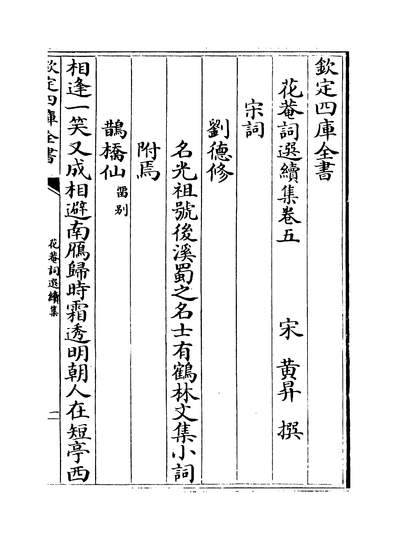 欽定四庫全書
花菴詞選續集卷五
宋 黄昇 撰
宋詞
劉德修
名光祖號後溪蜀之名士有鶴林文集小詞
附焉
鵲橋仙 畱别
相逢一笑又成相避南鴈歸時霜透明朝人在短亭西
欽定四庫全書
花菴詞選續集
一